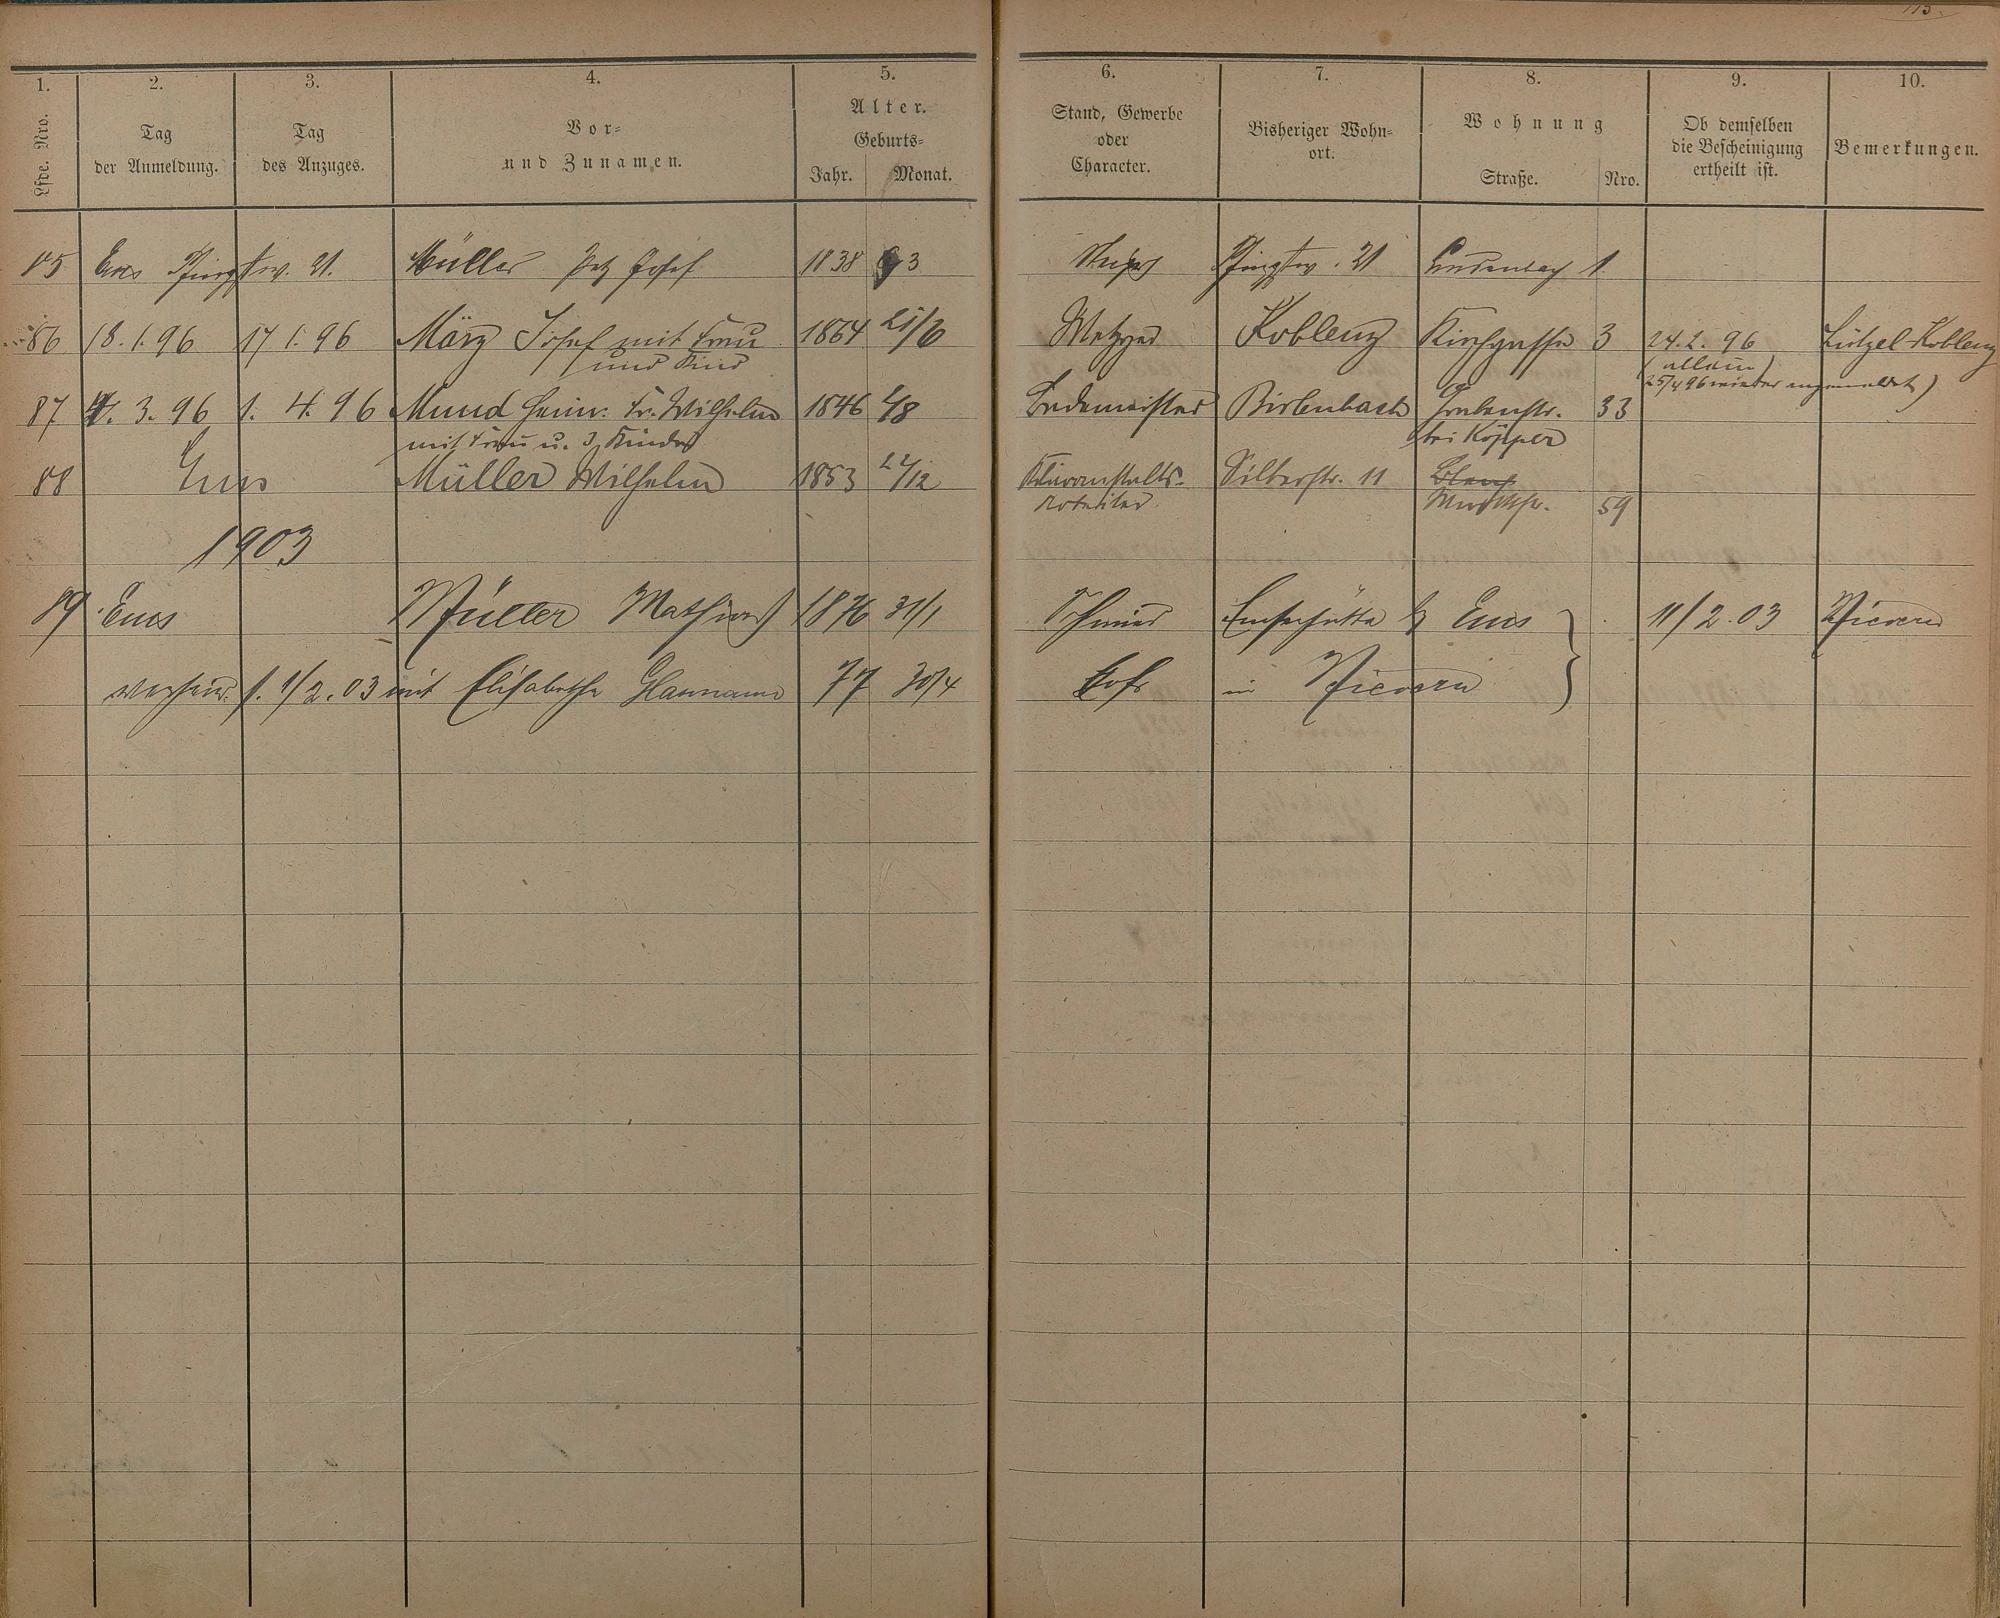 1.
2.
3.
4.
5.
6.
7.
8.
9.
10.
Lfde. Nro.
Tag
der Anmeldung.
Tag
des Anzuges.
Vor-
und Zunamen.
Alter.
Geburts-
Jahr. Monat.
Stand, Gewerbe
oder
Character.
Bisheriger Wohn-
ort.
Wohnung
Straße. Nro.
Ob demselben
die Bescheinigung
ertheilt ist.
Bemerkungen.
85 Ems 21. Müller Josef 1838 3 21 1
86 18.1.96 17 1.96 März Josef mit Frau 1864 Metzger Koblenz Kirchgasse 3 24.2.96 Lützel-Koblenz
und Kind (allein)
25/4 96 wieder angemeldet)
87 3.96 1.4.96 Mund Heinr. Fr. Wilhelm 1846 Bademeister Birlenbach Grabenstr. 33
mit Frau u. 3 Kinder bei Köpper
88 Ems Müller Wilhelm 1853 22/12 Silberstr. 11
59
1903
89 Ems Müller Mathias 1876 31/1 Schmied Emserhütte b/ Ems 11/2.03 Nievern
verheir. s. 1/2.03 mit Elisabetha 77 30/4 in Nievern